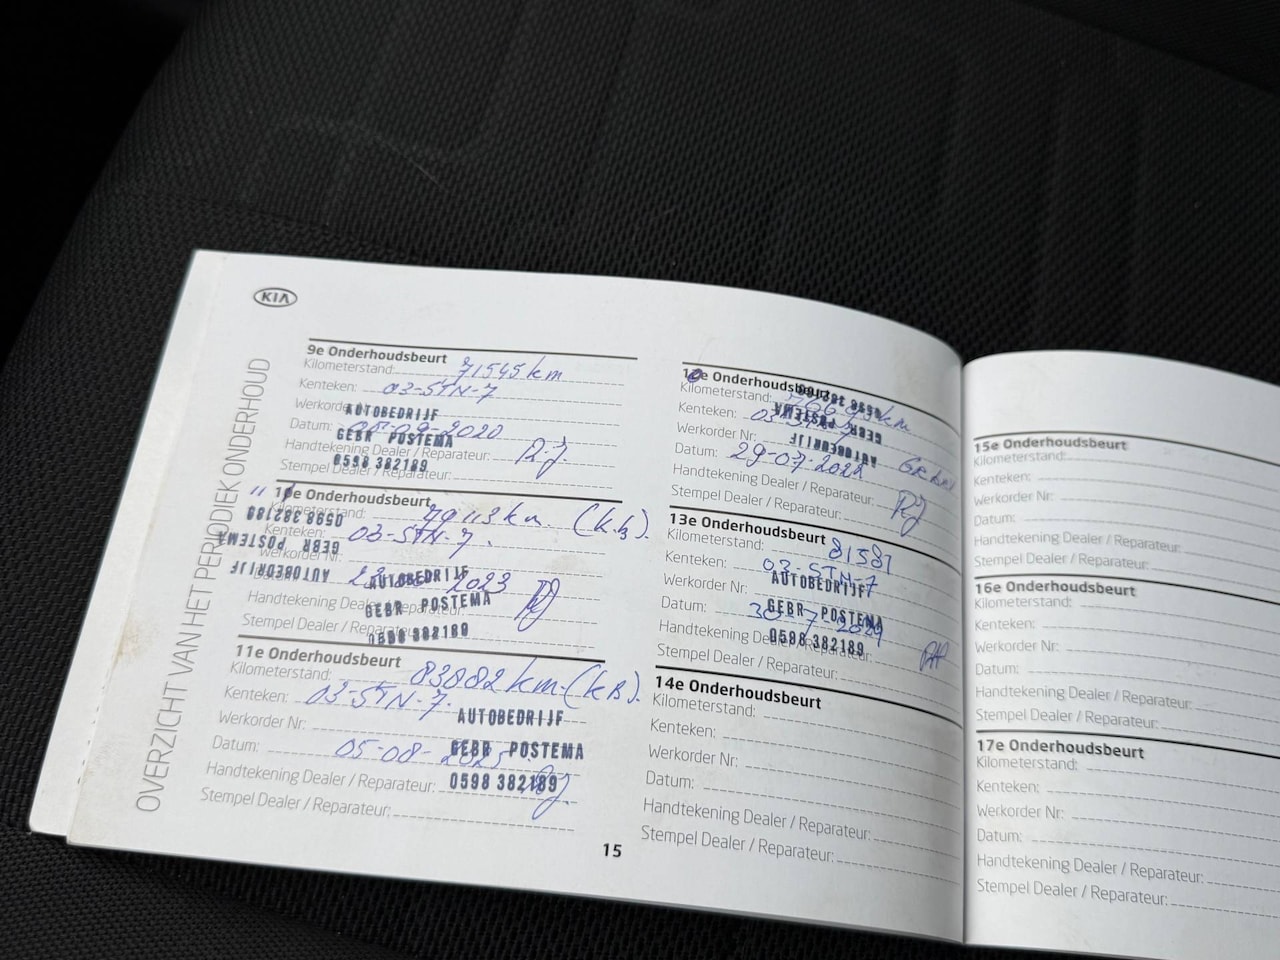 KIA
OVERZICHT VAN HET PERIODIEK ONDERHOUD
9e Onderhoudsbeurt
Kilometerstand: 71545 km
Kenteken: 03-STN-7
Werkorder
AUTOBEDRIJF
Datum: 08-09-2020
GEBR POSTEMA
Handtekening Dealer / Reparateur:
0598 382189
Stempel Dealer / Reparateur:
Onderhoudsbeurt
Kilometerstand: 79113 km. (k.B).
0598 382189
Kenteken: 03-STN-7.
GEBR POSTEMA
Werkorder Nr:
AUTOBEDRIJF
2023
AUTOBEDRIJF
Handtekening Dealer / Reparateur:
GEBR POSTEMA
Stempel Dealer / Reparateur:
0598 382189
11e Onderhoudsbeurt
Kilometerstand: 83882 km. (k B).
Kenteken: 03-STN-7.
Werkorder Nr:
AUTOBEDRIJF
Datum: 05-08-2025
GEBR POSTEMA
Handtekening Dealer / Reparateur:
0598 382189
Stempel Dealer / Reparateur:
Onderhoudsbeurt
Kilometerstand: km
0598 382189
Kenteken: 03-STN-7
GEBR POSTEMA
Werkorder Nr:
AUTOBEDRIJF
Datum: 29-07-2022
Handtekening Dealer / Reparateur:
Stempel Dealer / Reparateur:
13e Onderhoudsbeurt
Kilometerstand: 81581
Kenteken: 03-STN-7
Werkorder Nr:
AUTOBEDRIJF
Datum: 30-7-2024
GEBR POSTEMA
Handtekening Dealer / Reparateur:
0598 382189
Stempel Dealer / Reparateur:
14e Onderhoudsbeurt
Kilometerstand:
Kenteken:
Werkorder Nr:
Datum:
Handtekening Dealer / Reparateur:
Stempel Dealer / Reparateur:
15
15e Onderhoudsbeurt
Kilometerstand:
Kenteken:
Werkorder Nr:
Datum:
Handtekening Dealer / Reparateur:
Stempel Dealer / Reparateur:
16e Onderhoudsbeurt
Kilometerstand:
Kenteken:
Werkorder Nr:
Datum:
Handtekening Dealer / Reparateur:
Stempel Dealer / Reparateur:
17e Onderhoudsbeurt
Kilometerstand:
Kenteken:
Werkorder Nr:
Datum:
Handtekening Dealer / Reparateur:
Stempel Dealer / Reparateur: